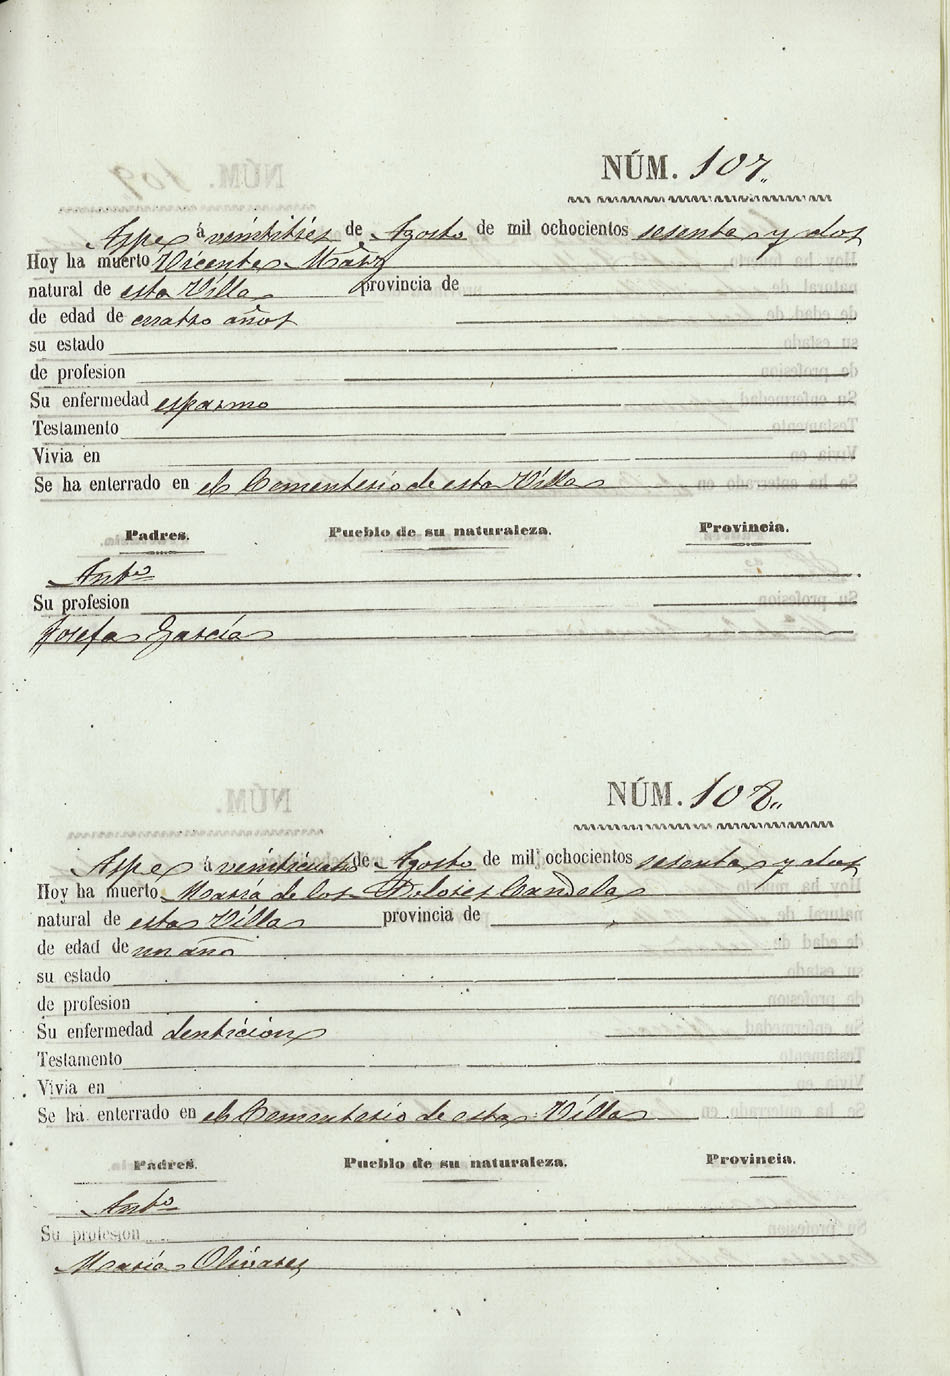 NÚM. 107.
Aspe á veintitres de Agosto de mil ochocientos sesenta y dos
Hoy ha muerto Vicente
natural de esta Villa provincia de
de edad de cuatro años
su estado
de profesion
Su enfermedad espasmo
Testamento
Vivia en
Se ha enterrado en el Cementerio de esta Villa
Padres. Pueblo de su naturaleza. Provincia.
Anto
Su profesion
Josefa García
NÚM. 108.
Aspe á veinticuatro de Agosto de mil ochocientos sesenta y dos
Hoy ha muerto María de los Dolores Candela
natural de esta Villa provincia de
de edad de un año
su estado
de profesion
Su enfermedad denticion
Testamento
Vivia en
Se ha enterrado en el Cementerio de esta Villa
Padres. Pueblo de su naturaleza. Provincia.
Anto
Su profesion
María Olivares